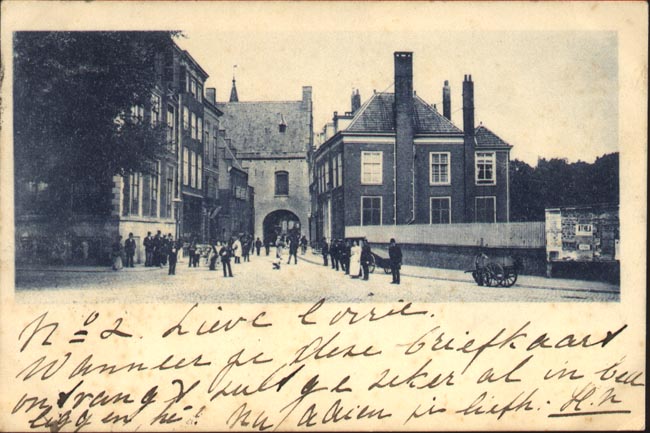 No 2. Lieve Corrie.
Wanneer ge deze briefkaart
ontvangt zult ge zeker al in bed
liggen hè! Nu adieu je liefh. H.